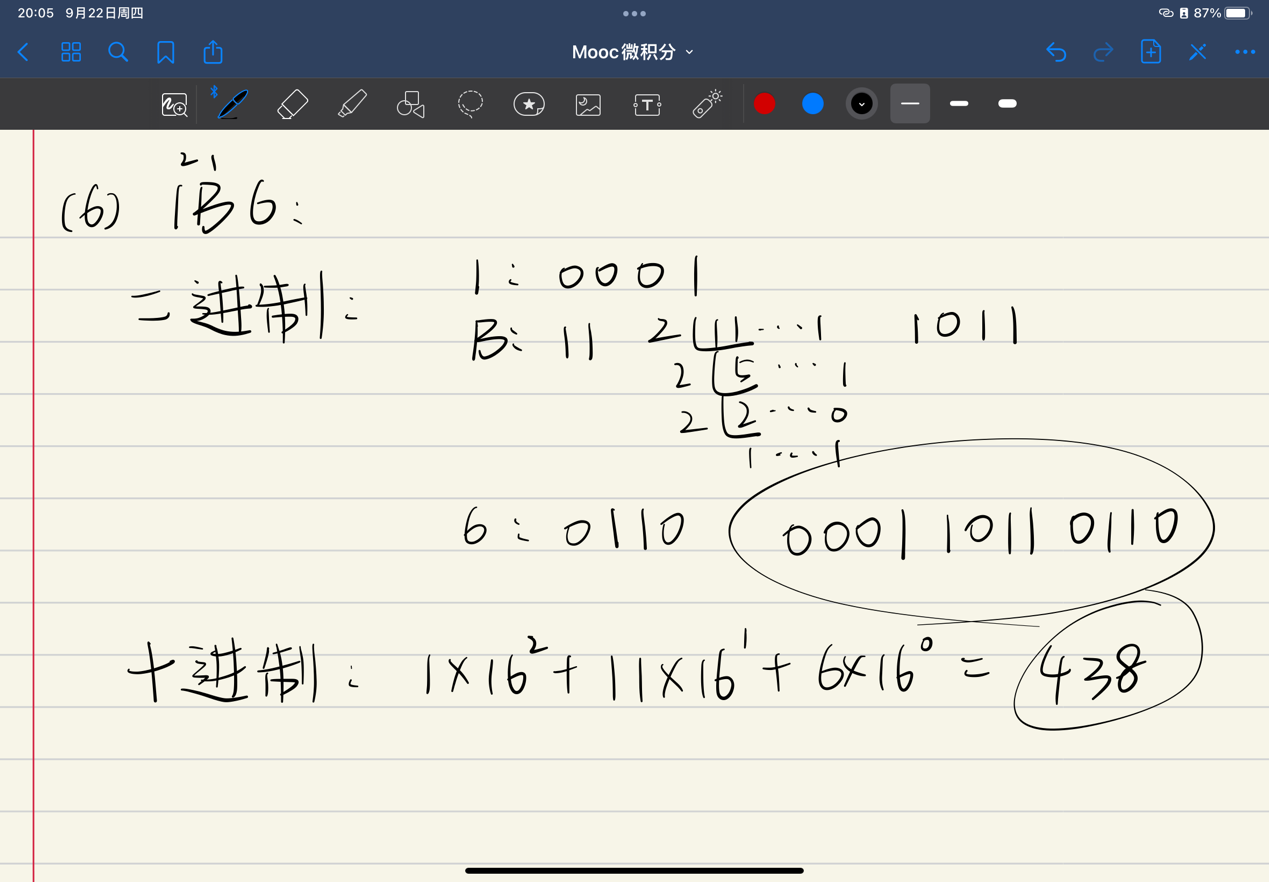 20:05 9月22日周四
87%
Mooc微积分
T
2 1
(6) 1B6:
二进制:
1: 0001
B: 11 2 11 ... 1 1011
2 5 ... 1
2 2 ... 0
1 ... 1
6: 0110 0001 1011 0110
十进制: 1×16² + 11×16¹ + 6×16⁰ = 438